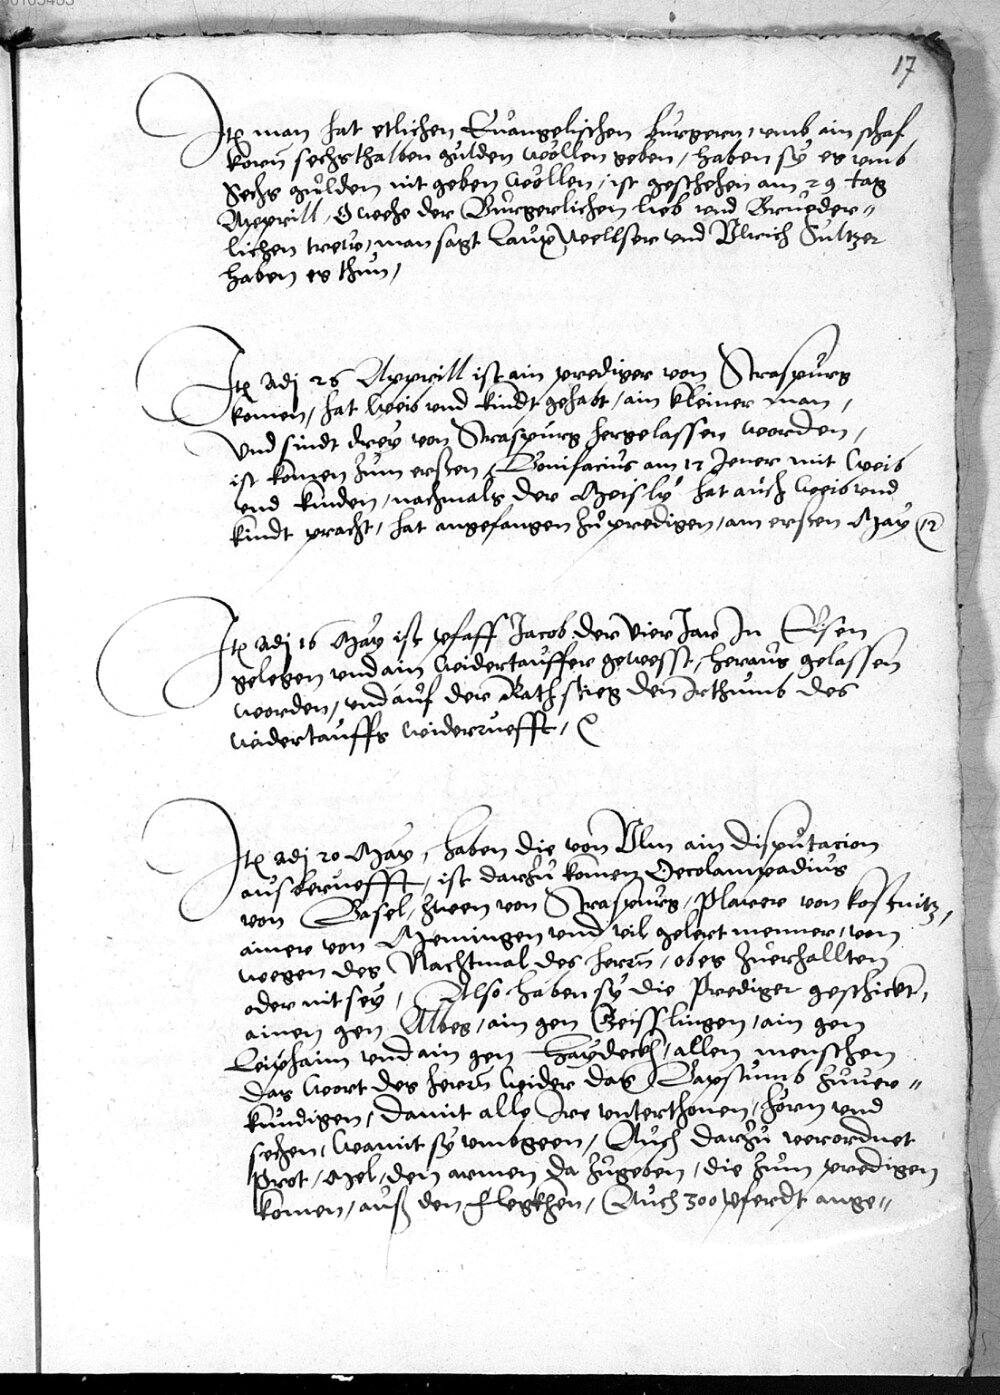 17
Itẽ man hat etlichen Euangelischen burgern, umb ain schaf
korn sechsthalben gulden wöllen geben, haben sy es umb
Sechs gulden nit geben wöllen, ist geschehen am 29 tag
Apprill, O wehe der Burgerlichen lieb und Brueder-
lichen trew, man sagt Laux Wellser und Ulrich Sultzer
haben es thun,
Itẽ Adj 26 Apprill ist ain prediger von Straspurg
komen, hat weib und kindt gehabt, ain kleiner man,
Und sindt drey von Straspurg hergelassen worden,
ist komen zum ersten Bonifacius am 12 Jener mit weib
und kinden, nachmals der Meisly hat auch weib und
kindt pracht, hat angefangen zu predigen, am ersten May
Itẽ Adj 16 May ist pfaff Jacob der vier Jar In Eisen
gelegen und ain widertauffer gewesst, heraus gelassen
worden, und auf der Rath stieg den Irthumb des
widertauffs widerruefft,
Itẽ Adj 20 May, haben die von Ulm ain disputacion
ausberuefft, ist darzu komen Oecolampadius
von Basel, zween von Straspurg, Plarer von kostnitz,
ainer von Memingen und vil gelert menner, von
wegen des Nachtmal des herrn, ob es zuerhallten
oder nit sey, Also haben sy die Prediger geschickt,
ainen gen Albeg, ain gen Geisslingen, ain gen
Leiphaim und ain gen Haydeckh, allen menschen
das wort des herrn wider das Bapstumb zuver-
kundigen, damit alle Ire unterthonen, hörn und
sehen, wamit sy umbgeen, Auch darzu verordnet
Prot, Mel, den armen da zugeben, die zum predigen
komen, auß den Flegkhen, Auch 300 pferdt ange-